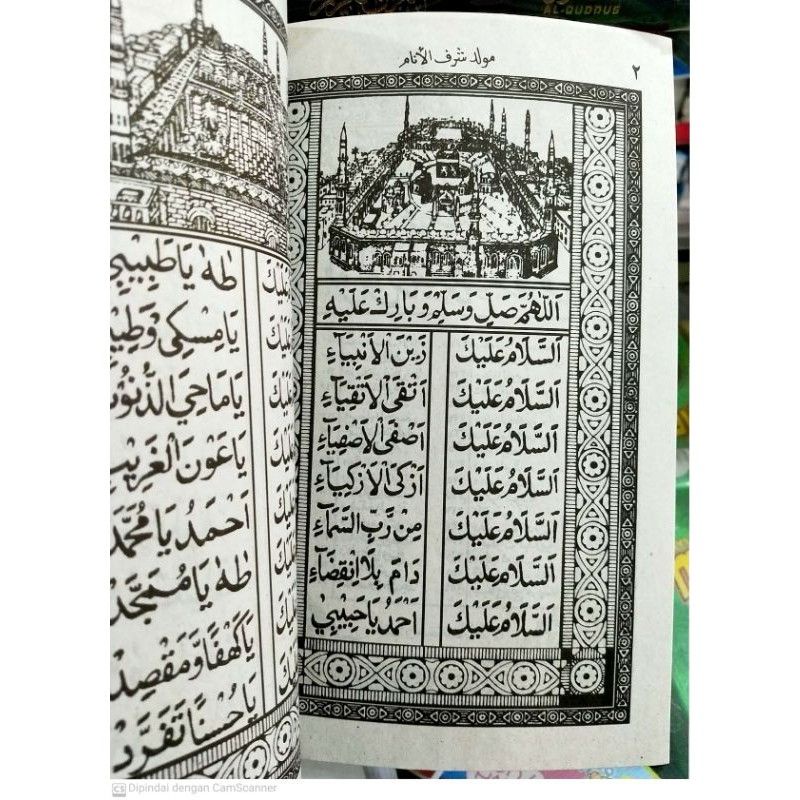 AL-QUDDUS
٢ مولد شرف الأنام
اَللّٰهُمَّ صَلِّ وَسَلِّمْ وَبَارِكْ عَلَيْهِ
اَلسَّلَامُ عَلَيْكَ زَيْنَ الْاَنْبِيَاءِ
اَلسَّلَامُ عَلَيْكَ اَتْقَى الْاَتْقِيَاءِ
اَلسَّلَامُ عَلَيْكَ اَصْفَى الْاَصْفِيَاءِ
اَلسَّلَامُ عَلَيْكَ اَزْكَى الْاَزْكِيَاءِ
اَلسَّلَامُ عَلَيْكَ مِنْ رَبِّ السَّمَاءِ
اَلسَّلَامُ عَلَيْكَ دَامَ بِلَا انْقِضَاءِ
اَلسَّلَامُ عَلَيْكَ اَحْمَدُ يَا حَبِيْبِيْ
طٰهٰ يَا طَبِيْبِيْ
يَا مِسْكِيْ
يَا مَاحِيَ
يَا عَوْنَ الْغَرِيْبِ
اَحْمَدُ يَا مُحَمَّدُ
طٰهٰ يَا مُمَجَّدُ
يَا كَهْفًا وَّمَقْصِدُ
يَا حُسْنًا تَفَرَّدَ
CS Dipindai dengan CamScanner